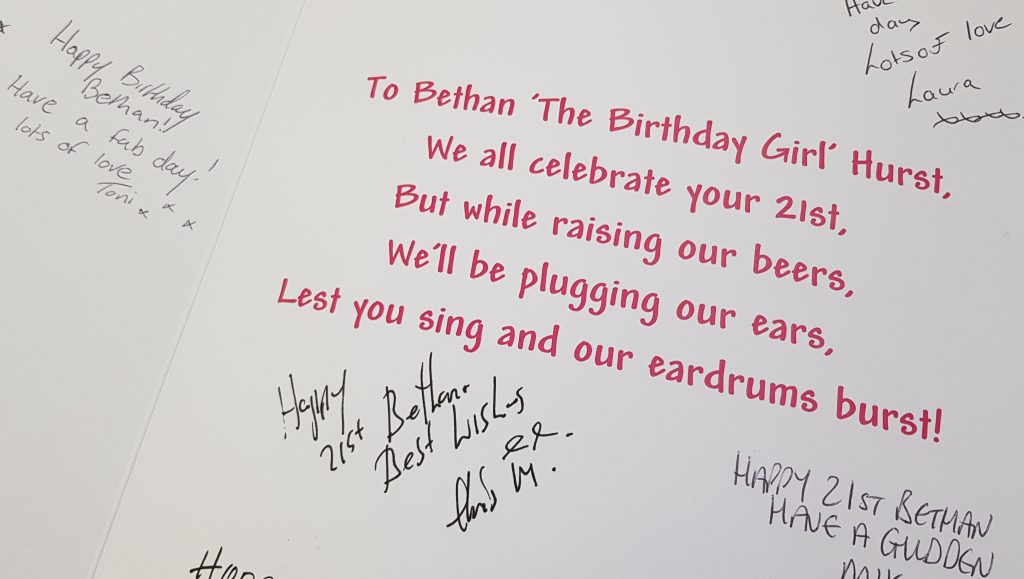 Happy Birthday
Bethan!!
Have a fab day!
lots of love
Toni x x x
Have
day
Lots of love
Laura
xxxx
To Bethan ‘The Birthday Girl’ Hurst,
We all celebrate your 21st,
But while raising our beers,
We’ll be plugging our ears,
Lest you sing and our eardrums burst!
Happy
21st Bethan.
Best Wishes
Chris M.
HAPPY 21ST BETHAN
HAVE A GUDDEN